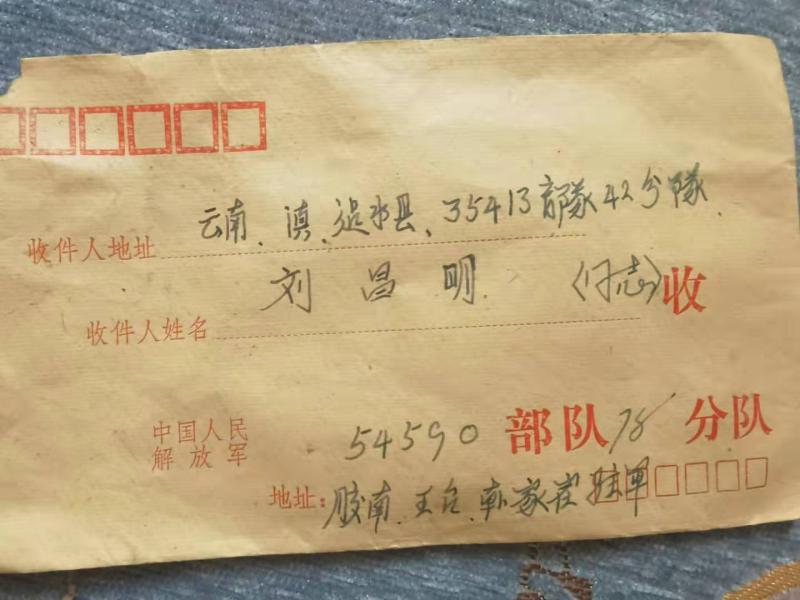 收件人地址 云南、滇、𨒪水县、35413部隊42分隊.
收件人姓名 刘昌明. (同志)收
中国人民解放军 54590 部队 78 分队
地址: 胶南.王台.韩家崖驻軍